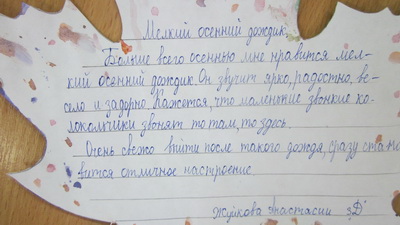 Мелкий осенний дождик.
Больше всего осенью мне нравится мел-
кий осенний дождик. Он звучит ярко, радостно, ве-
село и задорно. Кажется, что маленькие звонкие ко-
локольчики звонят то там, то здесь.
Очень свежо выйти после такого дождя, сразу стано
вится отличное настроение.
Жуйкова Анастасии 3"Д"